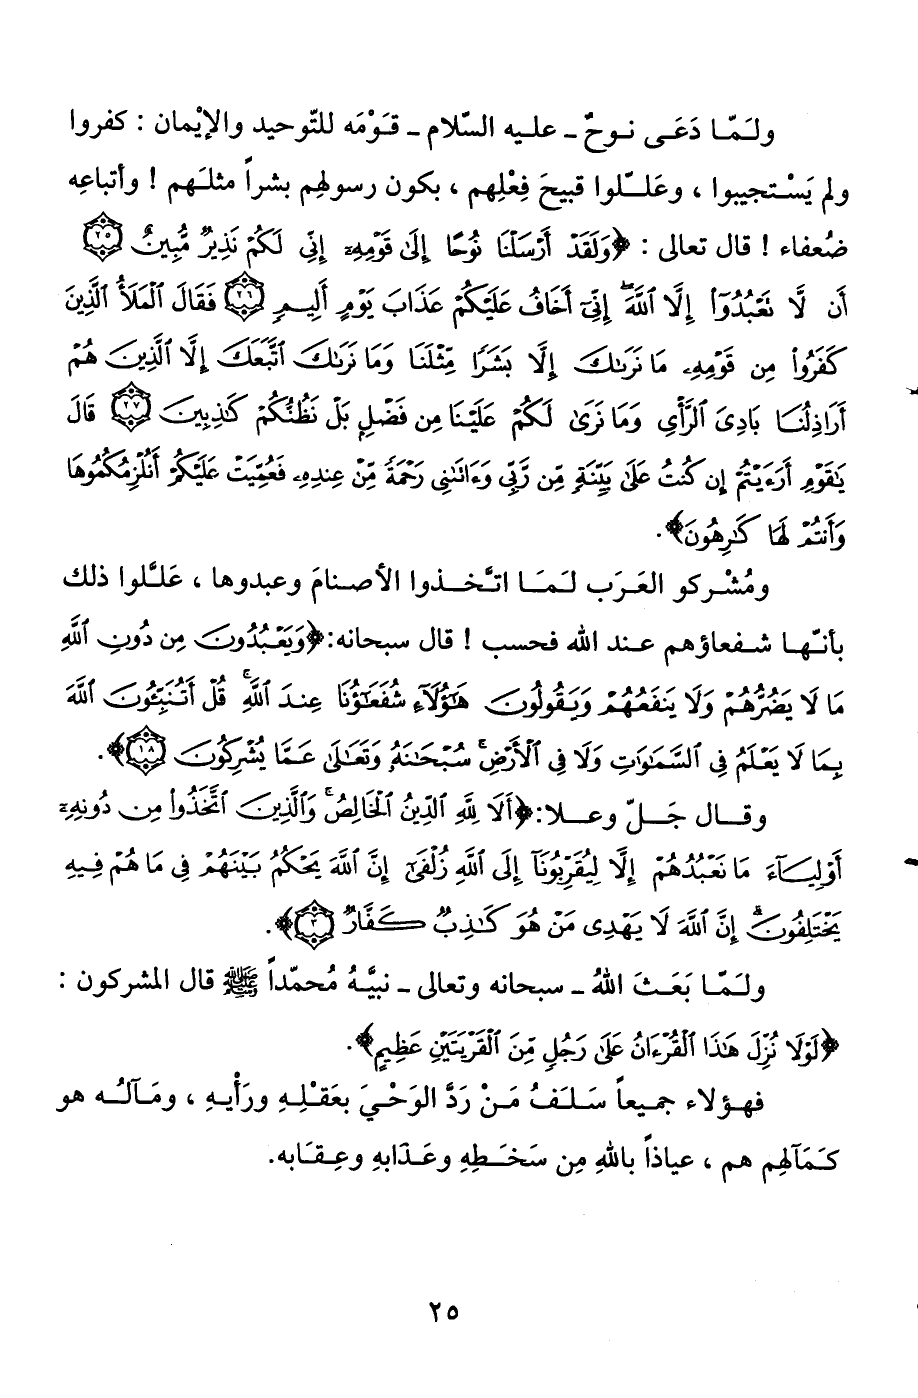 ولَمّا دَعَى نوحٌ ـ عليه السّلام ـ قَوْمَه للتّوحيد والإيْمان : كفروا
ولم يَسْتجيبوا ، وعَلّلوا قبيحَ فِعْلِهم ، بكون رسولهم بشراً مثلَهم ! وأتباعِه
ضُعفاء ! قال تعالى : ﴿وَلَقَدْ أَرْسَلْنَا نُوحًا إِلَىٰ قَوْمِهِۦٓ إِنِّى لَكُمْ نَذِيرٌ مُّبِينٌ ۝٢٥
أَن لَّا نَعْبُدُوٓا۟ إِلَّا ٱللَّهَ ۖ إِنِّىٓ أَخَافُ عَلَيْكُمْ عَذَابَ يَوْمٍ أَلِيمٍ ۝٢٦ فَقَالَ ٱلْمَلَأُ ٱلَّذِينَ
كَفَرُوا۟ مِن قَوْمِهِۦ مَا نَرَىٰكَ إِلَّا بَشَرًا مِّثْلَنَا وَمَا نَرَىٰكَ ٱتَّبَعَكَ إِلَّا ٱلَّذِينَ هُمْ
أَرَاذِلُنَا بَادِىَ ٱلرَّأْىِ وَمَا نَرَىٰ لَكُمْ عَلَيْنَا مِن فَضْلٍ بَلْ نَظُنُّكُمْ كَٰذِبِينَ ۝٢٧ قَالَ
يَٰقَوْمِ أَرَءَيْتُمْ إِن كُنتُ عَلَىٰ بَيِّنَةٍ مِّن رَّبِّى وَءَاتَىٰنِى رَحْمَةً مِّنْ عِندِهِۦ فَعُمِّيَتْ عَلَيْكُمْ أَنُلْزِمُكُمُوهَا
وَأَنتُمْ لَهَا كَٰرِهُونَ﴾.
ومُشْركو العَرَب لَمَا اتَّخذوا الأصنامَ وعبدوها ، عَلَّلوا ذلك
بأنّها شفعاؤهم عند الله فحسب ! قال سبحانه: ﴿وَيَعْبُدُونَ مِن دُونِ ٱللَّهِ
مَا لَا يَضُرُّهُمْ وَلَا يَنفَعُهُمْ وَيَقُولُونَ هَٰٓؤُلَآءِ شُفَعَٰٓؤُنَا عِندَ ٱللَّهِ ۚ قُلْ أَتُنَبِّـُٔونَ ٱللَّهَ
بِمَا لَا يَعْلَمُ فِى ٱلسَّمَٰوَٰتِ وَلَا فِى ٱلْأَرْضِ ۚ سُبْحَٰنَهُۥ وَتَعَٰلَىٰ عَمَّا يُشْرِكُونَ ۝١٨﴾.
وقال جَلّ وعلا: ﴿أَلَا لِلَّهِ ٱلدِّينُ ٱلْخَالِصُ ۚ وَٱلَّذِينَ ٱتَّخَذُوا۟ مِن دُونِهِۦٓ
أَوْلِيَآءَ مَا نَعْبُدُهُمْ إِلَّا لِيُقَرِّبُونَآ إِلَى ٱللَّهِ زُلْفَىٰٓ إِنَّ ٱللَّهَ يَحْكُمُ بَيْنَهُمْ فِى مَا هُمْ فِيهِ
يَخْتَلِفُونَ ۗ إِنَّ ٱللَّهَ لَا يَهْدِى مَنْ هُوَ كَٰذِبٌ كَفَّارٌ ۝٣﴾.
ولَمّا بَعَثَ اللهُ ـ سبحانه وتعالى ـ نبيَّهُ مُحمّداً ﷺ قال المشركون :
﴿لَوْلَا نُزِّلَ هَٰذَا ٱلْقُرْءَانُ عَلَىٰ رَجُلٍ مِّنَ ٱلْقَرْيَتَيْنِ عَظِيمٍ﴾.
فهؤلاء جميعاً سَلَفُ مَنْ رَدَّ الوَحْيَ بعَقْلِهِ ورَأْيِهِ ، ومَآلُه هو
كمَآلِهِم هم ، عياذاً باللهِ مِن سَخَطِهِ وعَذَابهِ وعِقَابه.
٢٥